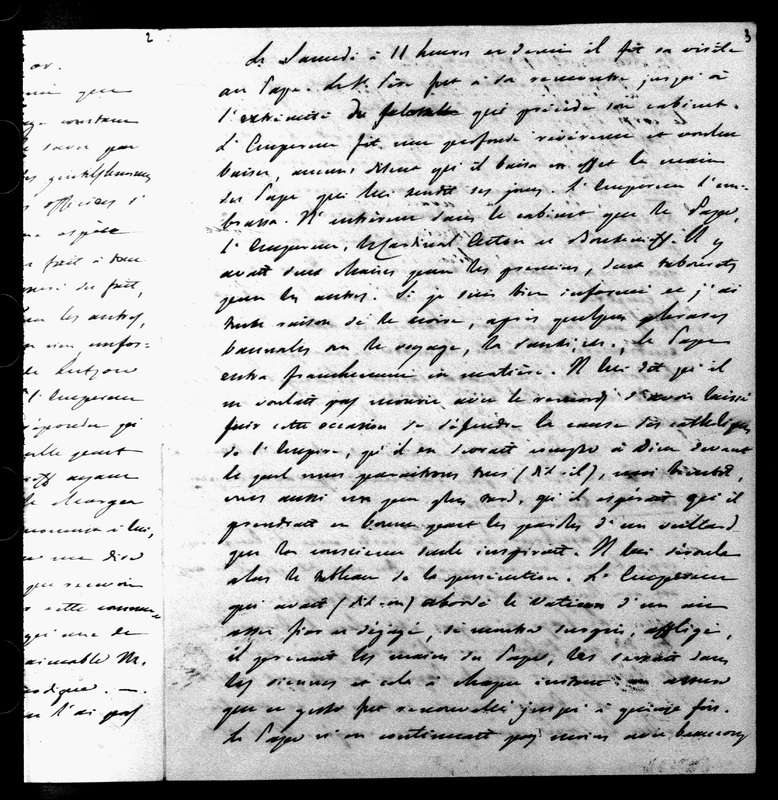 2
or.
que
constance
par
gentilshommes
officiers
espèce
fait à tout
du fait,
les autres,
de Lutzow
l'Empereur
répondre qu'
ayant
à lui,
me dire
que recevoir
cette
qui me de
aimable M.
l'ai pas
3
Le Samedi à 11 heures et demie il fit sa visite
au Pape. Le St. Père fut à sa rencontre jusqu'à
l'extrémité du qui précède son cabinet.
L'Empereur fit une profonde révérence et voulut
baiser, aucuns disent qu'il baisa en effet la main
du Pape qui lui tendit ses joues. L'Empereur l'em-
brassa. N'entrèrent dans le cabinet que le Pape,
l'Empereur, le Cardinal Acton et Boutenieff. Il y
avait deux chaises pour les premiers, deux tabourets
pour les autres. Si je suis bien informé et j'ai
toute raison de le croire, après quelques phrases
bannales sur le voyage, la santé etc., le Pape
entra franchement en matière. Il lui dit qu'il
ne voulait pas mourir avec le remords d'avoir laissé
fuir cette occasion de défendre la cause des catholiques
de l'Empire, qu'il en devrait compte à Dieu devant
le quel nous paraîtrons tous (dit-il), moi bientôt,
vous aussi un peu plus tard, qu'il espérait qu'il
prendrait en bonne part les paroles d'un vieillard
que la conscience seule inspirait. Il lui déroula
alors le tableau de la persécution. L'Empereur
qui avait (dit-on) abordé le Vatican d'un air
assez fier et dégagé, se montra surpris, affligé,
il prenait les mains du Pape, les serrait dans
les siennes et cela à chaque instant on assure
que ce geste fut renouvellé jusqu'à quinze fois.
Le Pape n'en continuait pas moins avec beaucoup